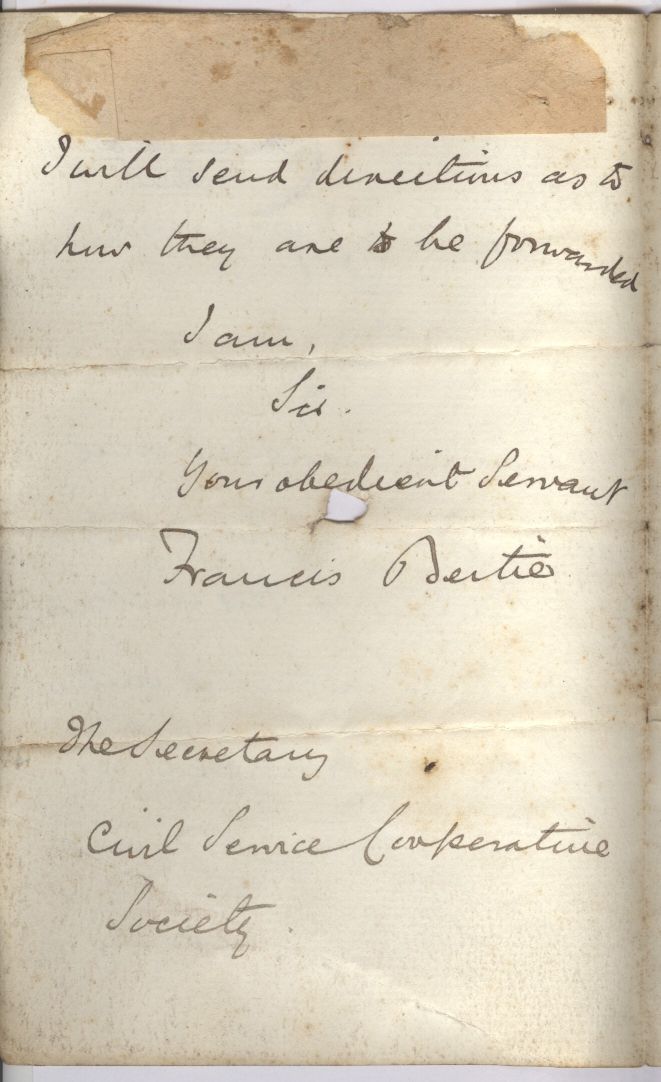 I will send directions as to
how they are to be forwarded
I am,
Sir.
Your obedient Servant
Francis Bertie
The Secretary
Civil Service Cooperative
Society.